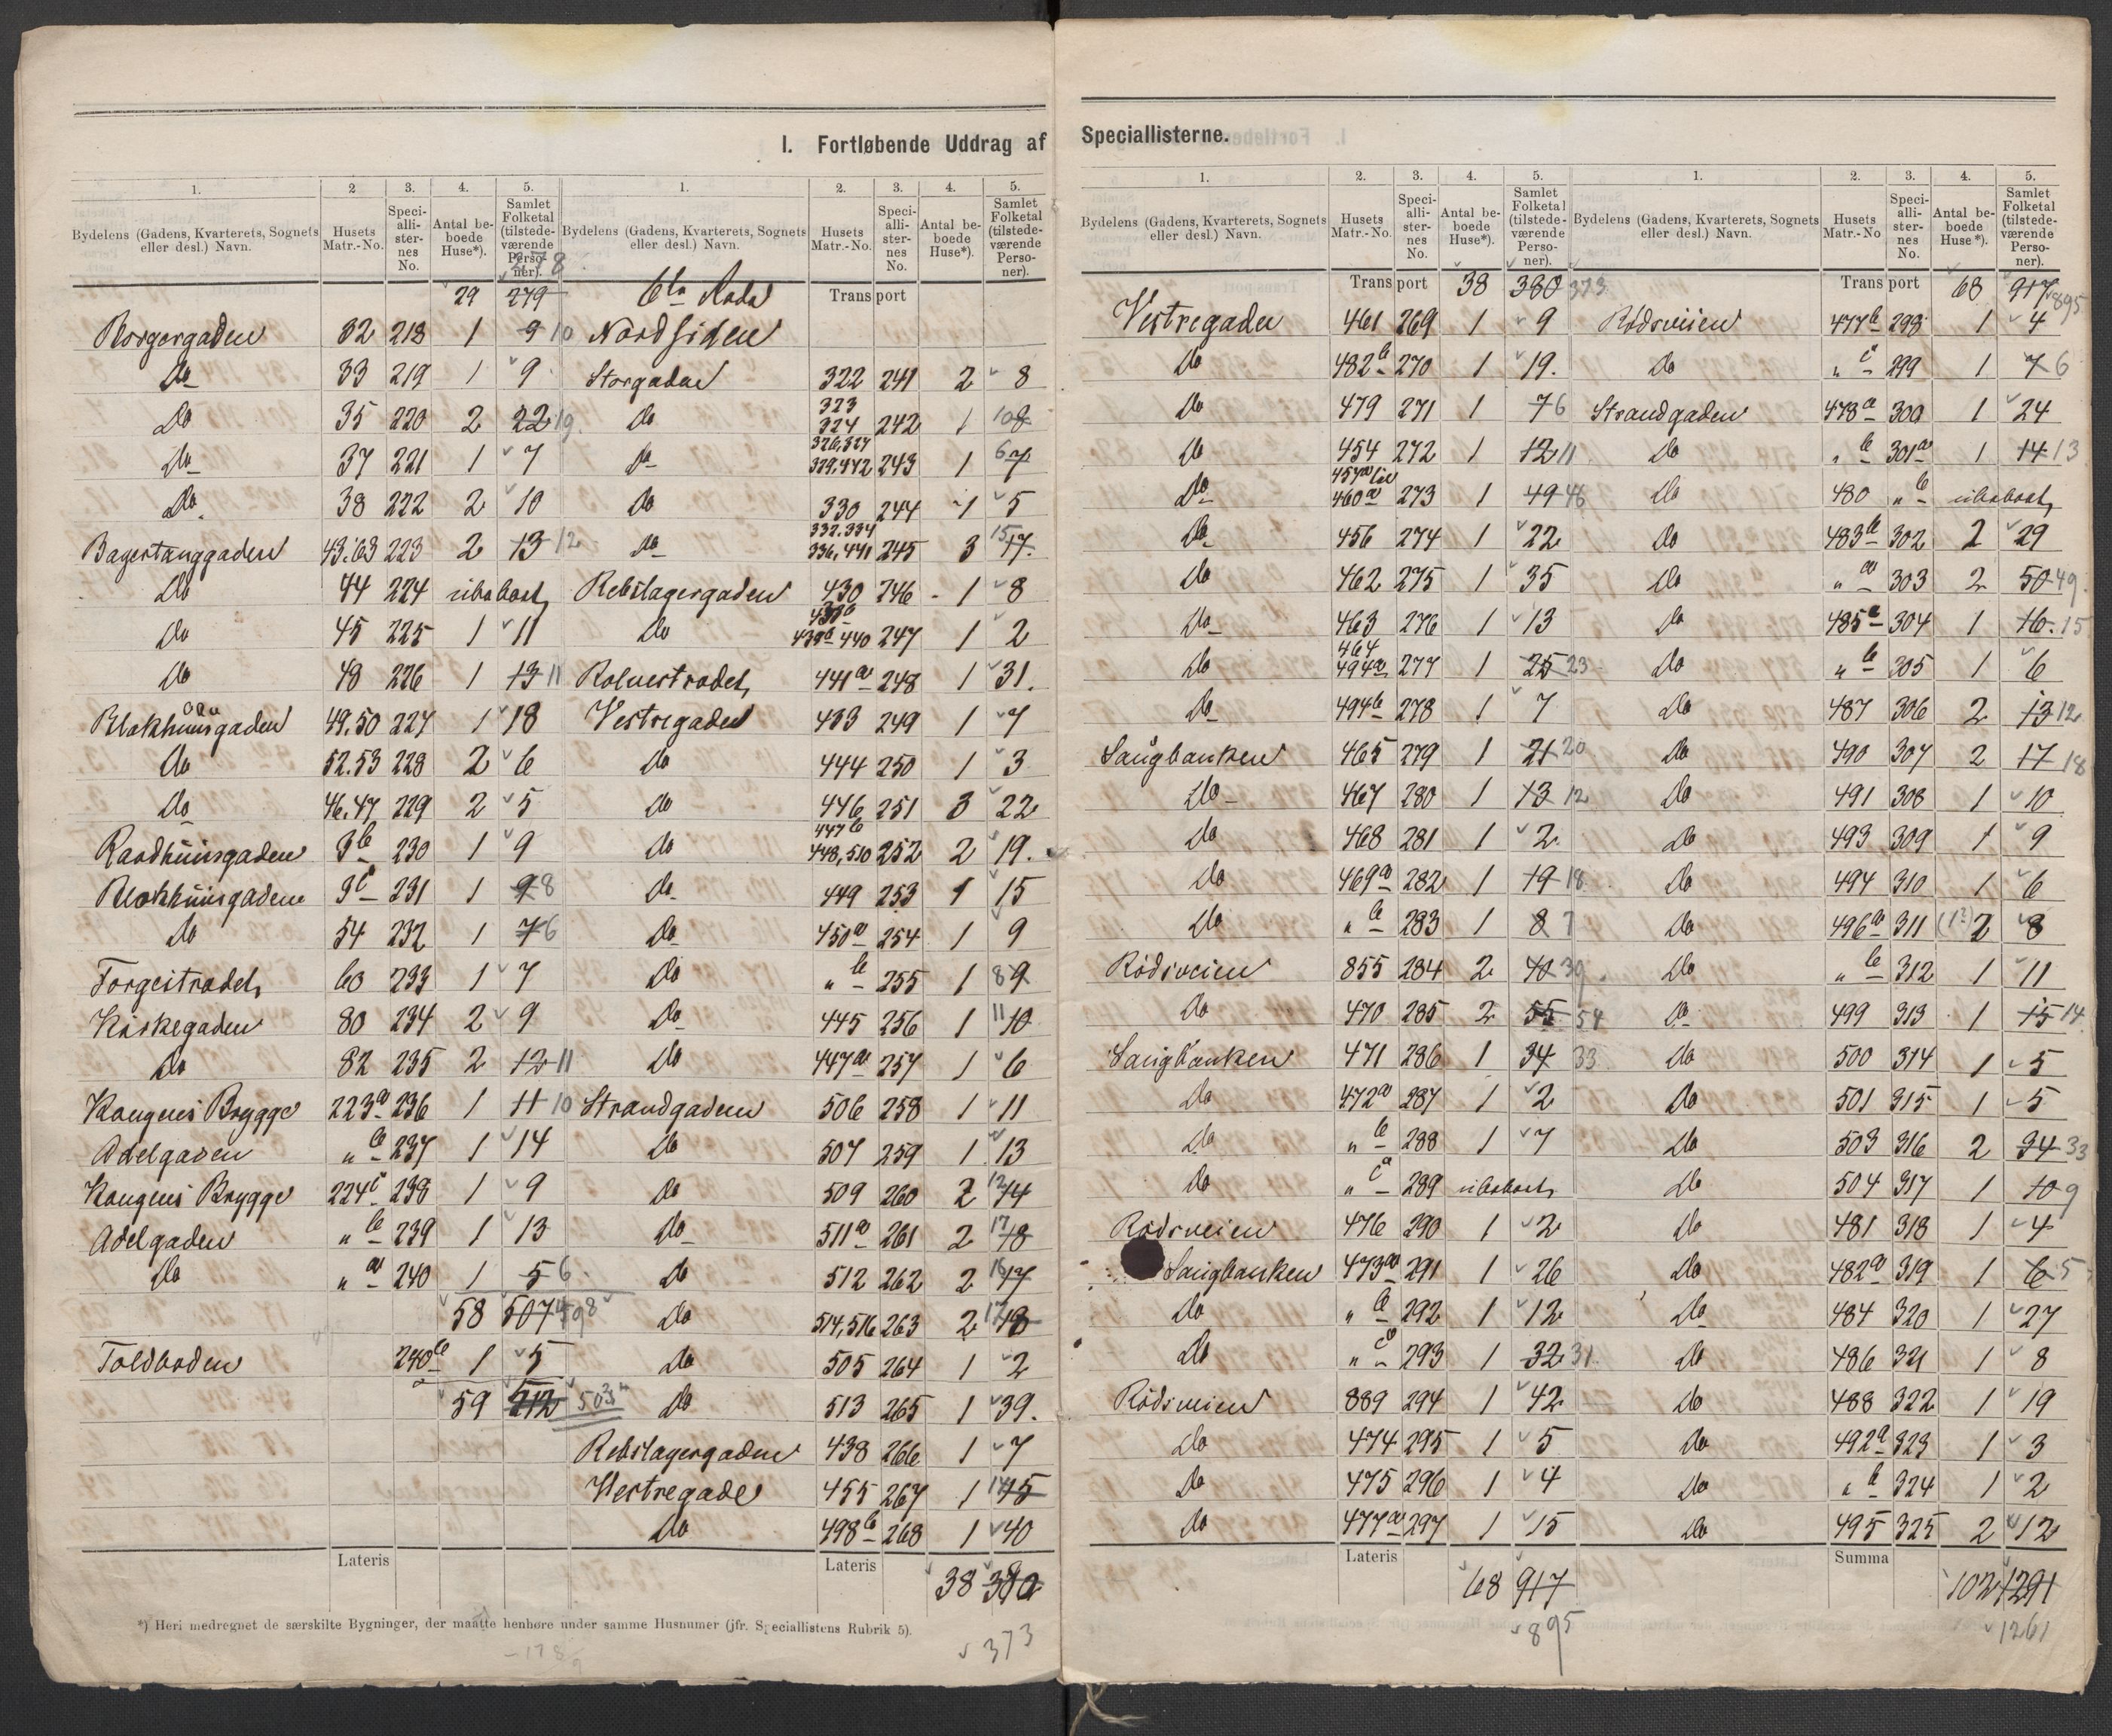 I. Fortløbende Uddrag af Speciallisterne.
1. 2 3. 4. 5. 1. 2. 3. 4. 5.
Bydelens (Gadens, Kvarterets, Sognets eller desl.) Navn. Husets Matr.-No. Speciallisternes No. Antal beboede Huse*). Samlet Folketal (tilstedeværende Personer).
Bydelens (Gadens, Kvarterets, Sognets eller desl.) Navn. Husets Matr.-No. Speciallisternes No. Antal beboede Huse*). Samlet Folketal (tilstedeværende Personer).
278
29 279
Borgergaden 32 218 1 9 10
Do 33 219 1 9
Do 35 220 2 22 19
Do 37 221 1 7
Do 38 222 2 10
43.63 223 2 13 12
Do 44 224 ubeboet
Do 45 225 1 11
Do 48 226 1 13 11
Blokhuusgaden 49.50 227 1 18
Do 52.53 228 2 6
Do 46.47 229 2 5
Raadhuusgaden 3b 230 1 9
Blokhuusgaden 3c 231 1 9 8
Do 54 232 1 7 6
Torgestrædet 60 233 1 7
Kirkegaden 80 234 2 9
Do 82 235 2 12 11
Kongens Brygge 223a 236 1 11 10
Adelgaden " b 237 1 14
Kongens Brygge 224c 238 1 9
Adelgaden " b 239 1 13
Do " a 240 1 5 6
58 507 498
Toldboden 240b 1 5
59 512 503
Lateris
6te Rode Transport
Nordsiden
Storgaden 322 241 2 8
Do 323 324 242 1 10 8
Do 326,327 329.442 243 1 6 7
Do 330 244 1 5
Do 332.334 336,441 245 3 15 17
Rebslagergaden 430 246 1 8
Do 439a 440 247 1 2
441a 248 1 31.
Vestregaden 433 249 1 7
Do 444 250 1 3
Do 446 251 3 22
Do 447b 448,510 252 2 19.
Do 449 253 1 15
Do 450a 254 1 9
Do " b 255 1 8 9
Do 445 256 1 11 10
Do 447a 257 1 6
Strandgaden 506 258 1 11
Do 507 259 1 13
Do 509 260 2 12 14
Do 511a 261 2 17 18
Do 512 262 2 16 17
Do 514,516 263 2 17 18
Do 505 264 1 2
Do 513 265 1 39.
Rebslagergaden 438 266 1 7
Vestregade 455 267 1 14 15
Do 498b 268 1 40
Lateris 38 380
373
*) Heri medregnet de særskilte Bygninger, der maatte henhøre under samme Husnumer (jfr. Speciallistens Rubrik 5).
1. 2. 3. 4. 5. 1. 2. 3. 4. 5.
Bydelens (Gadens, Kvarterets, Sognets eller desl.) Navn. Husets Matr.-No. Speciallisternes No. Antal beboede Huse*). Samlet Folketal (tilstedeværende Personer).
Bydelens (Gadens, Kvarterets, Sognets eller desl.) Navn. Husets Matr.-No. Speciallisternes No. Antal beboede Huse*). Samlet Folketal (tilstedeværende Personer).
Transport 38 380 373
Vestregaden 461 269 1 9
Do 482b 270 1 19.
Do 479 271 1 7 6
Do 454 272 1 12 11
Do 460a 273 1 49 48
Do 456 274 1 22
Do 462 275 1 35
Do 463 276 1 13
Do 464 494a 277 1 25 23
Do 494b 278 1 7
Saugbanken 465 279 1 21 20
Do 467 280 1 13 12
Do 468 281 1 2
Do 469a 282 1 19 18
Do " b 283 1 8 7
Rødsveien 855 284 2 40 39
Do 470 285 2 55 54
Saugbanken 471 286 1 34 33
Do 472a 287 1 2
Do " b 288 1 7
Do " c 289 ubeboet
Rødsveien 476 290 1 2
Saugbanken 473a 291 1 26
Do " b 292 1 12
Do " c 293 1 32 31
Rødsveien 889 294 1 42
Do 474 295 1 5
Do 475 296 1 4
Do 477a 297 1 15
Lateris 68 917
895
Transport 68 917 895
Rødsveien 477b 298 1 4
Do " c 299 1 7 6
Strandgaden 478a 300 1 24
Do " b 301a 1 14 13
Do 480 " b ubeboet
Do 483b 302 2 29
Do " a 303 2 50 49
Do 485a 304 1 16. 15
Do " b 305 1 6
Do 487 306 2 13 12
Do 490 307 2 17 18
Do 491 308 1 10
Do 493 309 1 9
Do 494 310 1 6
Do 496a 311 (1?) 2 8
Do " b 312 1 11
Do 499 313 1 15 14
Do 500 314 1 5
Do 501 315 1 5
Do 503 316 2 34 33
Do 504 317 1 10 9
Do 481 318 1 4
Do 482a 319 1 6 5
Do 484 320 1 27
Do 486 321 1 8
Do 488 322 1 19
Do 492a 323 1 3
Do " b 324 1 2
Do 495 325 2 12
Summa 102 1291
1261